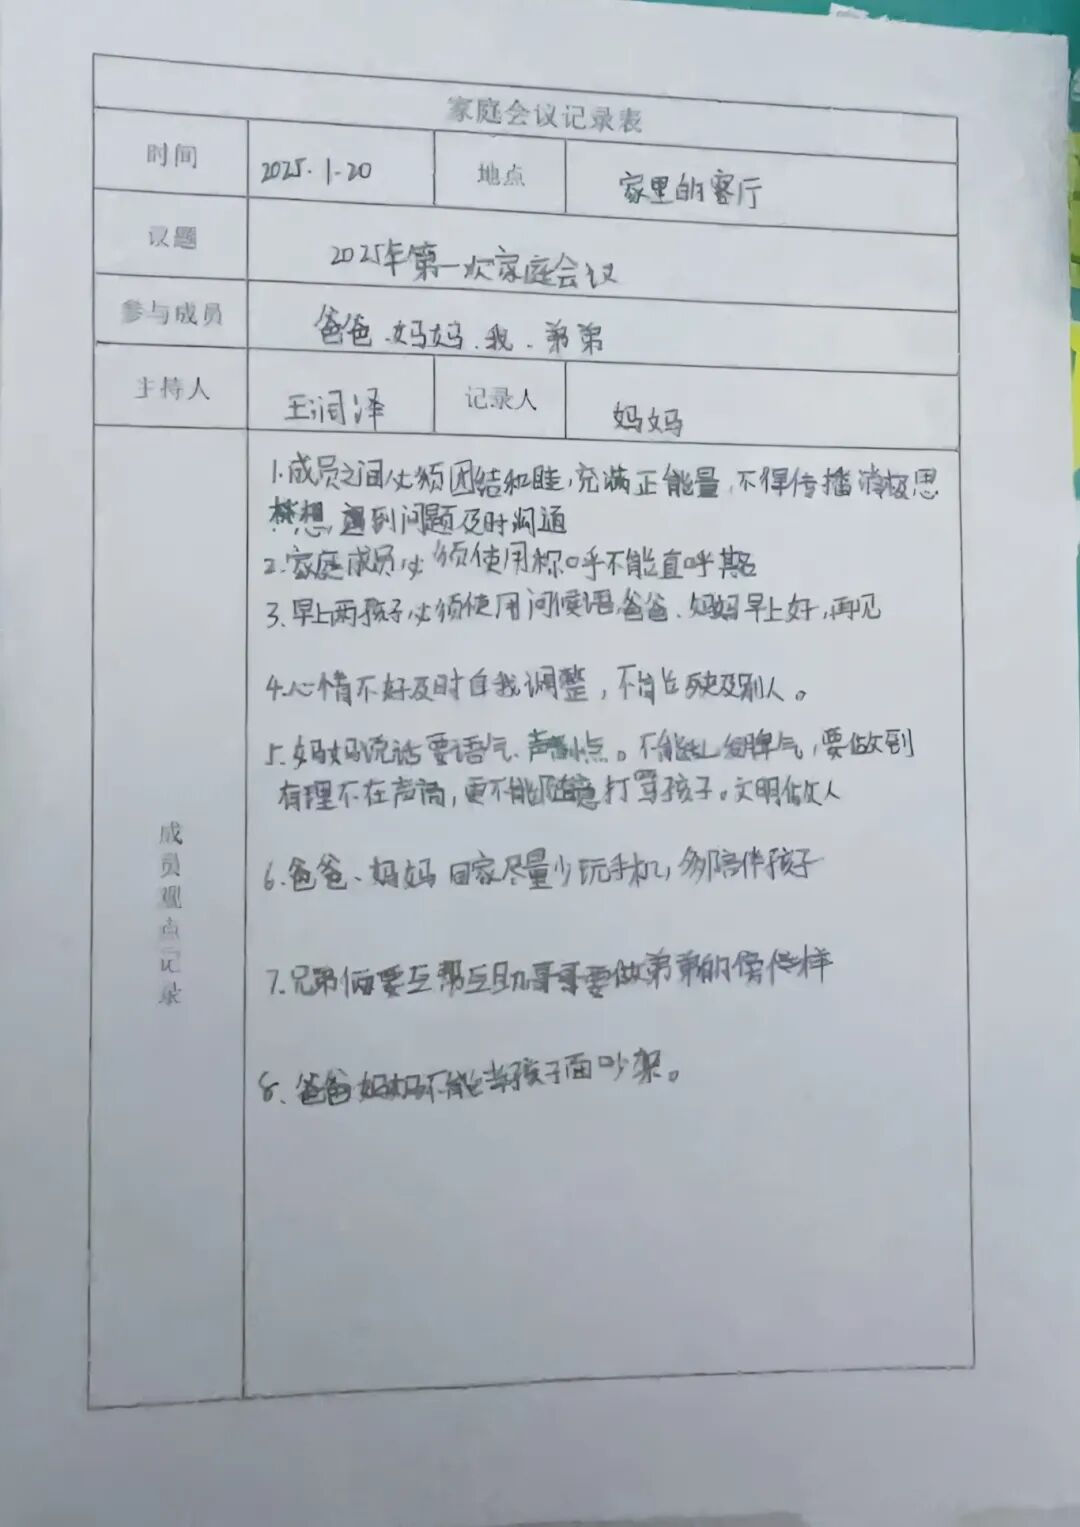 家庭会议记录表
时间 2025.1.20 地点 家里的客厅
议题 2025年第一次家庭会议
参与成员 爸爸、妈妈、我、弟弟
主持人 王润泽 记录人 妈妈
成员观点记录
1.成员之间必须团结和睦,充满正能量,不得传播消极思
想,遇到问题及时沟通
2.家庭成员必须使用称呼不能直呼其名
3.早上两孩子必须使用问候语,爸爸、妈妈早上好,再见
4.心情不好及时自我调整,不能占殃及别人。
5.妈妈说话要语气、声音小点。不能乱发脾气,要做到
有理不在声高,更不能随意打骂孩子。文明做人
6.爸爸、妈妈回家尽量少玩手机,多陪伴孩子
7.兄弟俩要互帮互助哥哥要做弟弟的榜样
8.爸爸妈妈不能当孩子面吵架。